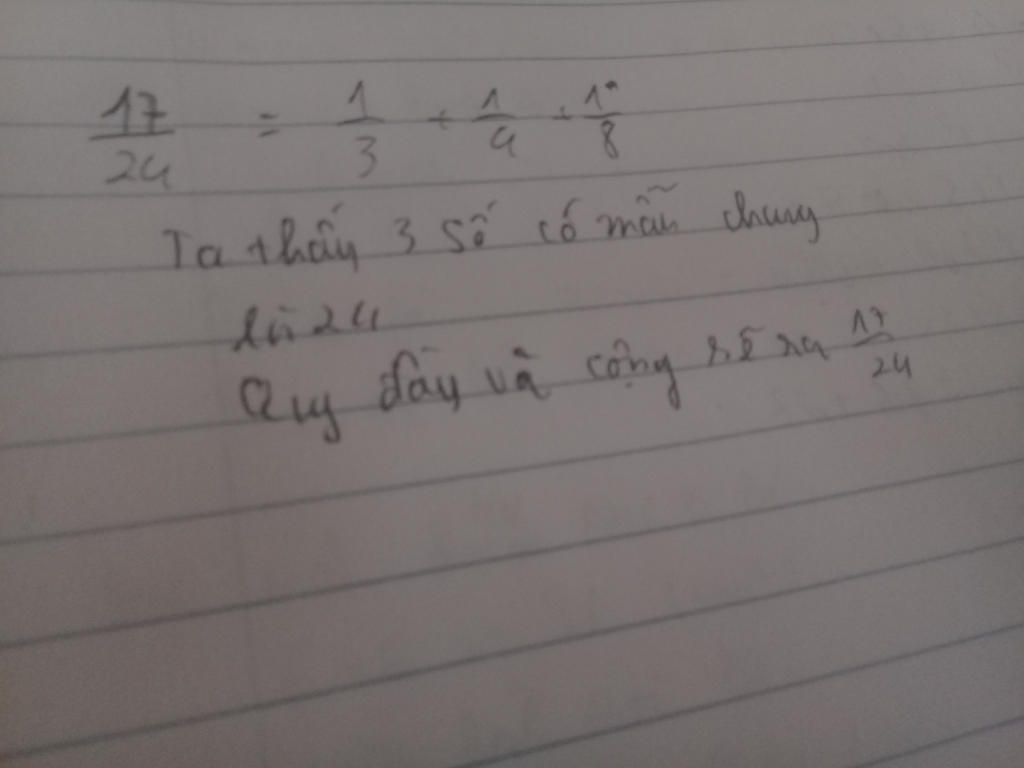 17/24 = 1/3 + 1/4 + 1/8
Ta thấy 3 số có mẫu chung
là 24
Quy đầy và cộng sẽ ra 17/24